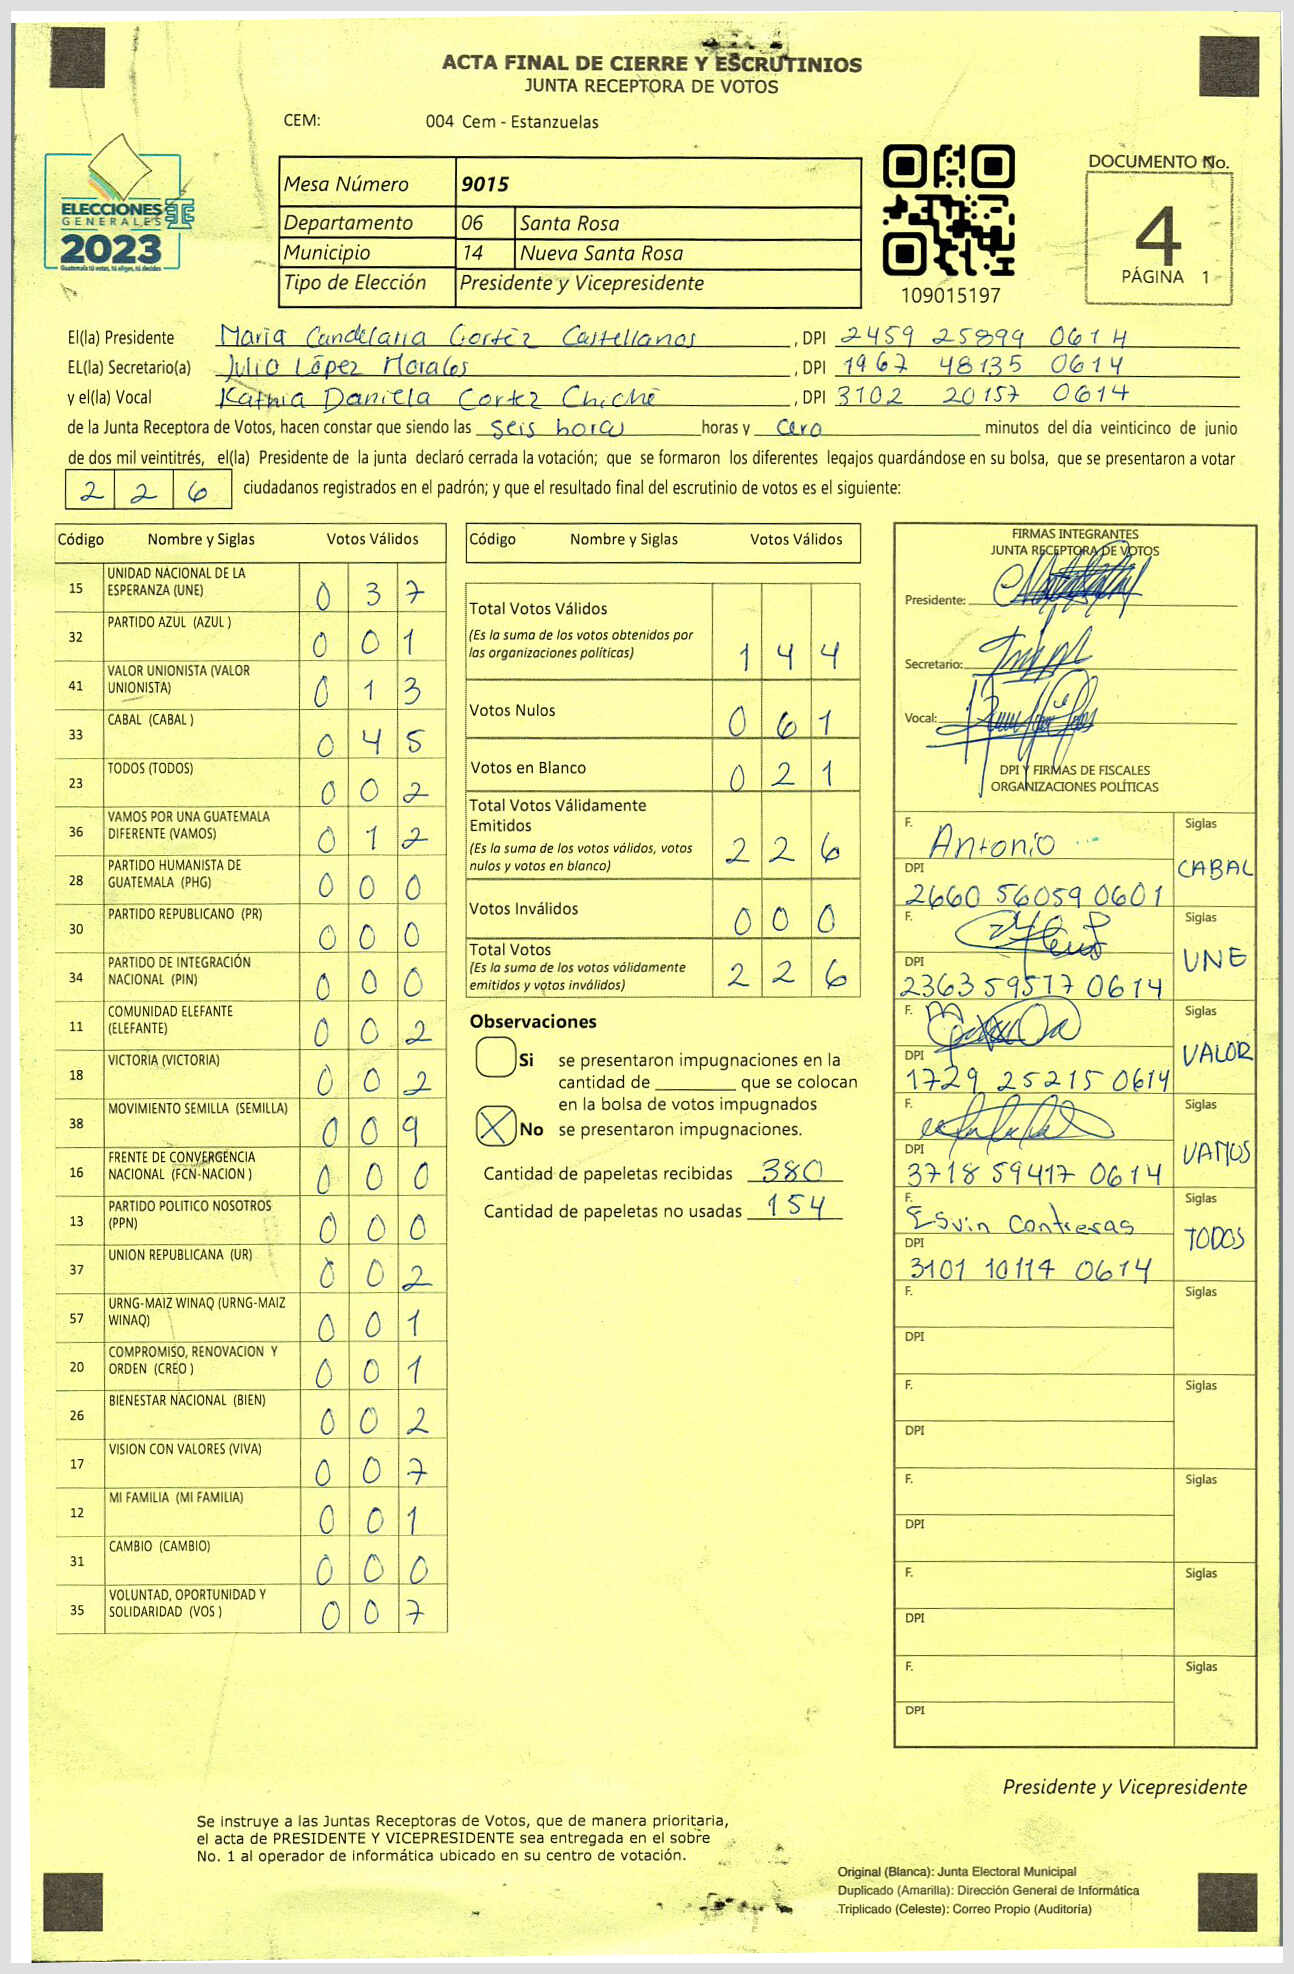 ACTA FINAL DE CIERRE Y ESCRUTINIOS
JUNTA RECEPTORA DE VOTOS
CEM: 004 Cem - Estanzuelas
ELECCIONES
GENERALES
2023
Guatemala tú votas, tú eliges, tú decides
Mesa Número 9015
Departamento 06 Santa Rosa
Municipio 14 Nueva Santa Rosa
Tipo de Elección Presidente y Vicepresidente
109015197
DOCUMENTO No.
4
PÁGINA 1
El(la) Presidente Maria Candelaria Cortéz Castellanos, DPI 2459 25899 0614
EL(la) Secretario(a) Julio López Morales, DPI 1967 48135 0614
y el(la) Vocal Daniela Cortez Chiché, DPI 3102 20157 0614
de la Junta Receptora de Votos, hacen constar que siendo las seis horas horas y cero minutos del día veinticinco de junio
de dos mil veintitrés, el(la) Presidente de la junta declaró cerrada la votación; que se formaron los diferentes legajos guardándose en su bolsa, que se presentaron a votar
2 2 6 ciudadanos registrados en el padrón; y que el resultado final del escrutinio de votos es el siguiente:
Código Nombre y Siglas Votos Válidos
15 UNIDAD NACIONAL DE LA ESPERANZA (UNE) 0 3 7
32 PARTIDO AZUL (AZUL ) 0 0 1
41 VALOR UNIONISTA (VALOR UNIONISTA) 0 1 3
33 CABAL (CABAL ) 0 4 5
23 TODOS (TODOS) 0 0 2
36 VAMOS POR UNA GUATEMALA DIFERENTE (VAMOS) 0 1 2
28 PARTIDO HUMANISTA DE GUATEMALA (PHG) 0 0 0
30 PARTIDO REPUBLICANO (PR) 0 0 0
34 PARTIDO DE INTEGRACIÓN NACIONAL (PIN) 0 0 0
11 COMUNIDAD ELEFANTE (ELEFANTE) 0 0 2
18 VICTORIA (VICTORIA) 0 0 2
38 MOVIMIENTO SEMILLA (SEMILLA) 0 0 9
16 FRENTE DE CONVERGENCIA NACIONAL (FCN-NACION ) 0 0 0
13 PARTIDO POLITICO NOSOTROS (PPN) 0 0 0
37 UNION REPUBLICANA (UR) 0 0 2
57 URNG-MAIZ WINAQ (URNG-MAIZ WINAQ) 0 0 1
20 COMPROMISO, RENOVACION Y ORDEN (CREO ) 0 0 1
26 BIENESTAR NACIONAL (BIEN) 0 0 2
17 VISION CON VALORES (VIVA) 0 0 7
12 MI FAMILIA (MI FAMILIA) 0 0 1
31 CAMBIO (CAMBIO) 0 0 0
35 VOLUNTAD, OPORTUNIDAD Y SOLIDARIDAD (VOS ) 0 0 7
Código Nombre y Siglas Votos Válidos
Total Votos Válidos
(Es la suma de los votos obtenidos por
las organizaciones políticas) 1 4 4
Votos Nulos 0 6 1
Votos en Blanco 0 2 1
Total Votos Válidamente
Emitidos
(Es la suma de los votos válidos, votos
nulos y votos en blanco) 2 2 6
Votos Inválidos 0 0 0
Total Votos
(Es la suma de los votos válidamente
emitidos y votos inválidos) 2 2 6
Observaciones
Si se presentaron impugnaciones en la
cantidad de ________ que se colocan
en la bolsa de votos impugnados
X No se presentaron impugnaciones.
Cantidad de papeletas recibidas 380
Cantidad de papeletas no usadas 154
FIRMAS INTEGRANTES
JUNTA RECEPTORA DE VOTOS
Presidente:
Secretario:
Vocal:
DPI Y FIRMAS DE FISCALES
ORGANIZACIONES POLÍTICAS
F. Antonio Siglas
DPI CABAL
2660 56059 0601
F. Siglas
DPI UNE
2363 59517 0614
F. Siglas
DPI VALOR
1729 25215 0614
F. Siglas
DPI VAMOS
3718 59417 0614
F. Esvin Contreras Siglas
DPI TODOS
3101 10114 0614
F. Siglas
DPI
F. Siglas
DPI
F. Siglas
DPI
F. Siglas
DPI
F. Siglas
DPI
Presidente y Vicepresidente
Se instruye a las Juntas Receptoras de Votos, que de manera prioritaria,
el acta de PRESIDENTE Y VICEPRESIDENTE sea entregada en el sobre
No. 1 al operador de informática ubicado en su centro de votación.
Original (Blanca): Junta Electoral Municipal
Duplicado (Amarilla): Dirección General de Informática
Triplicado (Celeste): Correo Propio (Auditoría)